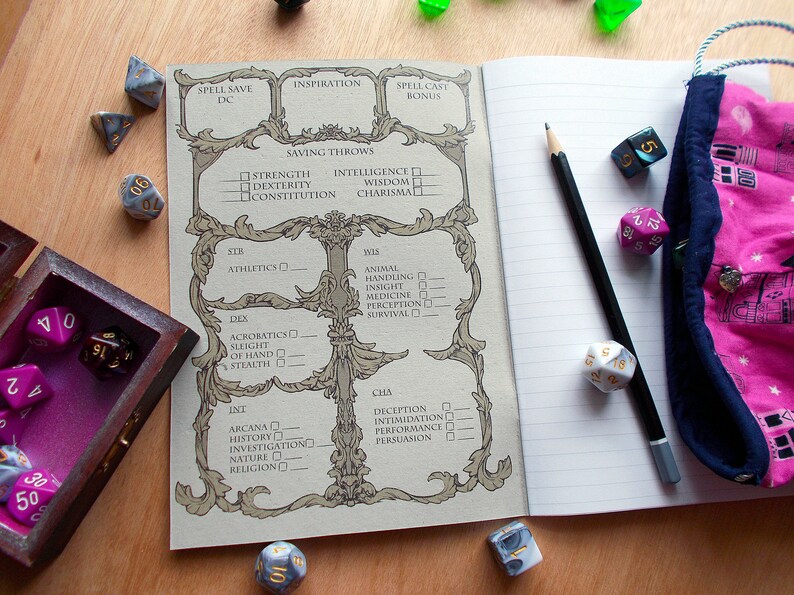 SPELL SAVE
DC
INSPIRATION
SPELL CAST
BONUS
SAVING THROWS
STRENGTH
DEXTERITY
CONSTITUTION
INTELLIGENCE
WISDOM
CHARISMA
STR
ATHLETICS
WIS
ANIMAL
HANDLING
INSIGHT
MEDICINE
PERCEPTION
SURVIVAL
DEX
ACROBATICS
SLEIGHT
OF HAND
STEALTH
INT
ARCANA
HISTORY
INVESTIGATION
NATURE
RELIGION
CHA
DECEPTION
INTIMIDATION
PERFORMANCE
PERSUASION
90
70
4
0
15
2
4
30
50
10
1
5
9
5
2
18
12
15
12